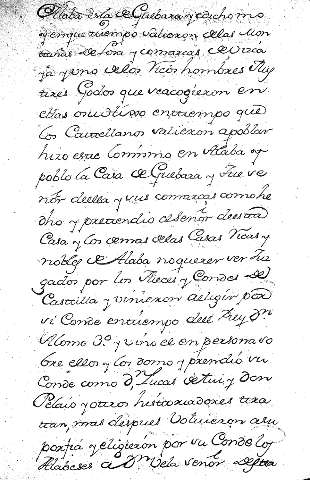 Alaba esta de Guebara y es uno mo
y en que tiempo valieron de las Mon
tañas de Soria y comarcas de Vizca
ya y uno de los Ricos hombres Ilus
tres Godos que se acogieron en
ellas en tiempo que
los Castellanos salieron a poblar
hizo este lo mismo en Alaba y
poblo la Casa de Guebara y fue se
ñor de ella y sus comarcas como he
dho y pretendio el señor de esta
Casa y los demas de las Casas Ricas y
nobles de Alaba no querer ser Juz
gados por los Jueces y Condes de
Castilla y vinieron a eligir por
si Conde en tiempo del Rey Dn
Alonso 3º y vino el en persona so
bre ellos y los domo y prendió su
Conde como Dn Lucas de Tui y Don
Pelaio y otros historiadores tra
tan, mas despues volvieron a su
porfia y eligieron por su Conde los
Alabeses a Dn Vela señor de esta